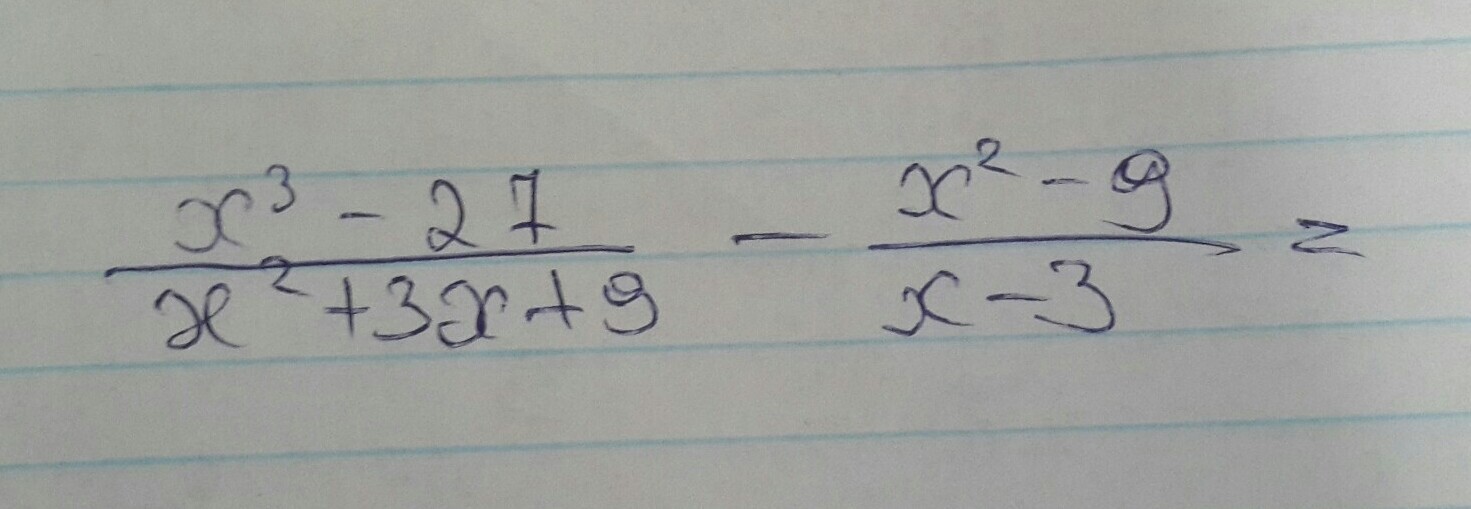 x³ - 27 / x² + 3x + 9 - x² - 9 / x - 3 =